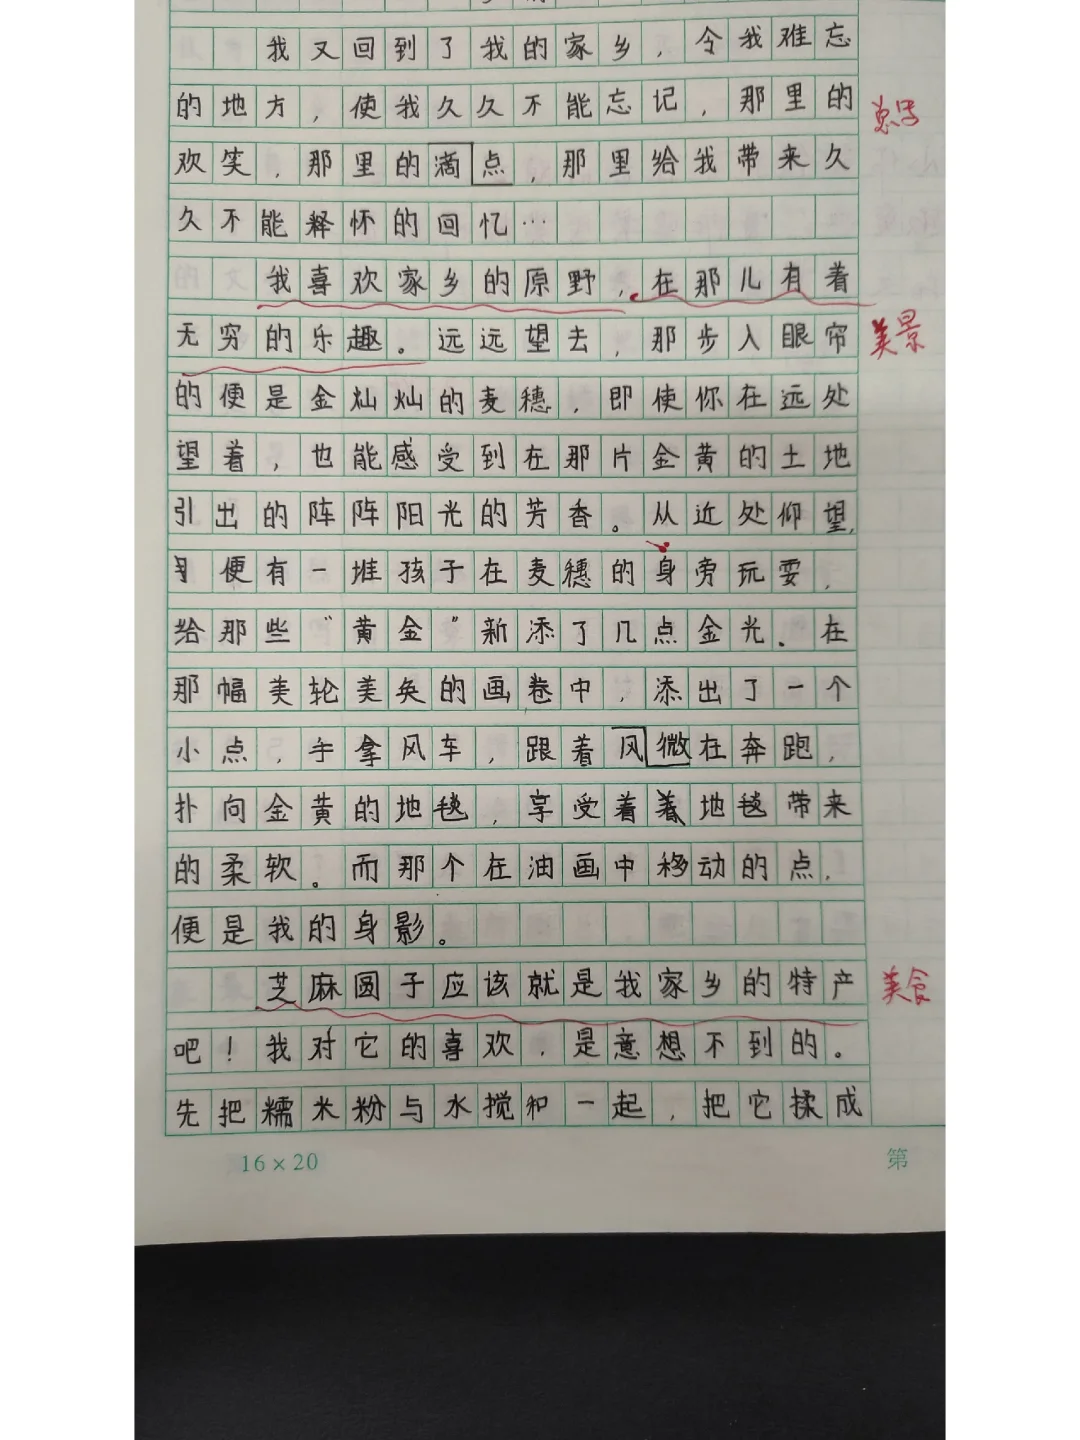 我又回到了我的家乡，令我难忘
的地方，使我久久不能忘记，那里的
总
欢笑，那里的滴点，那里给我带来久
久不能释怀的回忆…
我喜欢家乡的原野，在那儿有着
无穷的乐趣。远远望去，那步入眼帘
美景
的便是金灿灿的麦穗，即使你在远处
望着，也能感受到在那片金黄的土地
引出的阵阵阳光的芳香。从近处仰望，
便有一堆孩子在麦穗的身旁玩耍，
给那些“黄金”新添了几点金光．在
那幅美轮美奂的画卷中，添出了一个
小点，手拿风车，跟着风微在奔跑，
扑向金黄的地毯，享受着着地毯带来
的柔软。而那个在油画中移动的点，
便是我的身影。
芝麻圆子应该就是我家乡的特产
美食
吧！我对它的喜欢，是意想不到的。
先把糯米粉与水搅和一起，把它揉成
16×20
第